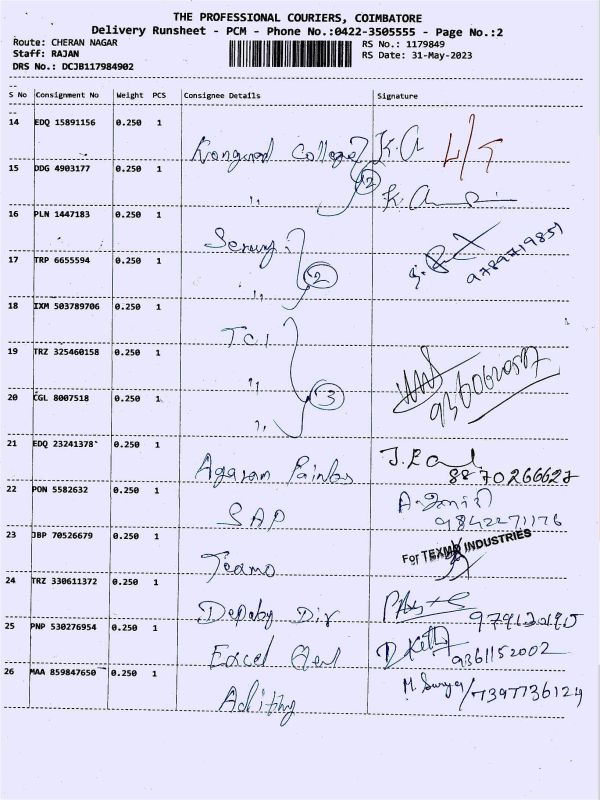 THE PROFESSIONAL COURIERS, COIMBATORE
Delivery Runsheet - PCM - Phone No.:0422-3505555 - Page No.:2
Route: CHERAN NAGAR RS No.: 1179849
Staff: RAJAN RS Date: 31-May-2023
DRS No.: DCJB117984902
S No Consignment No Weight PCS Consignee Details Signature
14 EDQ 15891156 0.250 1 College K.A
15 DDG 4903177 0.250 1 ,, 2 K.
16 PLN 1447183 0.250 1
17 TRP 6655594 0.250 1 ,, 2 9789719851
18 IXM 503789706 0.250 1 TCI
19 TRZ 325460158 0.250 1 ,,
20 CGL 8007518 0.250 1 ,, 3
21 EDQ 23241378 0.250 1 Agaram 8870266627
22 PON 5582632 0.250 1 SAP 9842271176
23 JBP 70526679 0.250 1 For TEXMO INDUSTRIES
24 TRZ 330611372 0.250 1 Dir
25 PNP 530276954 0.250 1 Excel 9361152002
26 MAA 859847650 0.250 1 M. Surya 7397736124